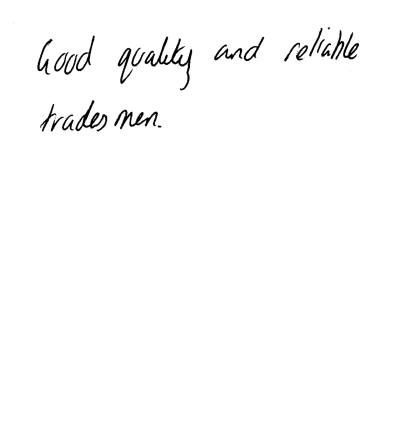 Good quality and reliable
tradesmen.